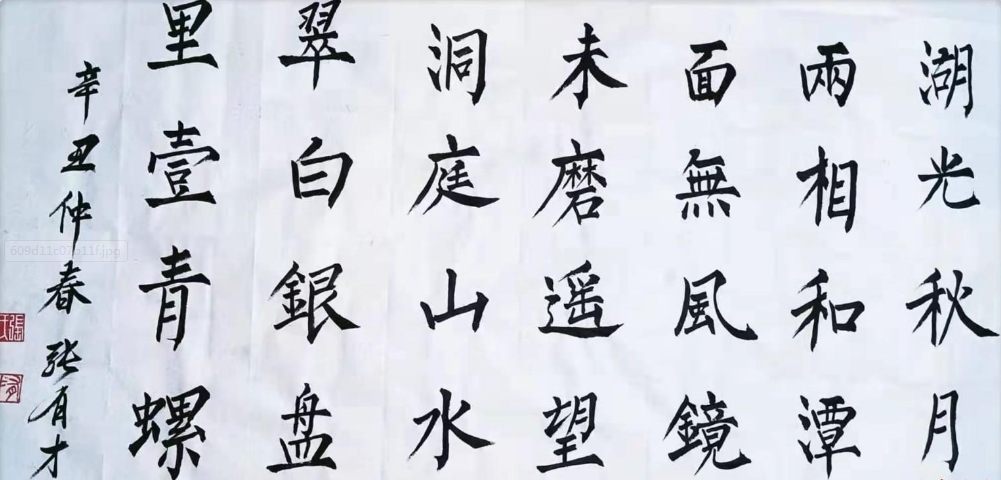 湖光秋月
兩相和潭
面無風鏡
未磨遥望
洞庭山水
翠白銀盘
里壹青螺
辛丑仲春 张有才
609d11c07b11f.jpg